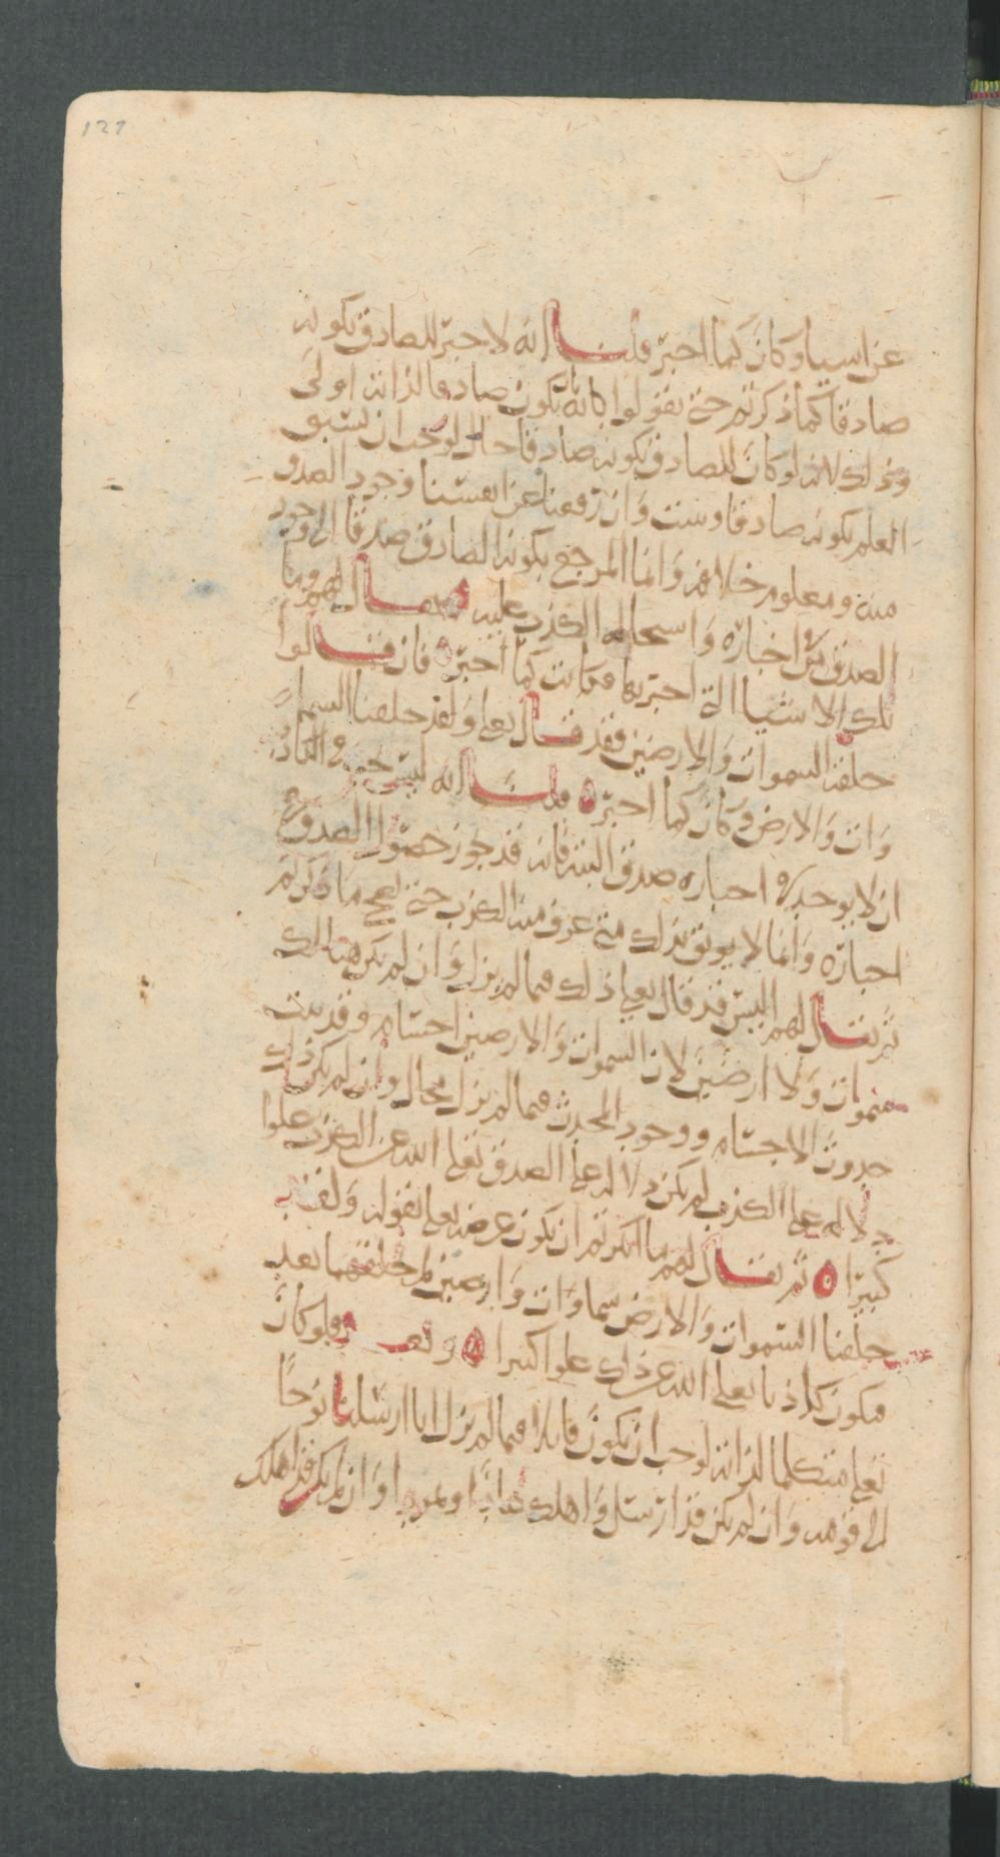 121
عن اشيا وكان كما اخبر قلنا انه لا خبر للصادق بكونه
صادقا كما ذكرتم حتى يقولوا بانه يكون صادقا لذاته اولى
وذلك لانه لو كان للصادق بكونه صادقا حال لوجب ان يسبق
العلم بكونه صادقا وان رفعنا عن انفسنا وجود الصدق
منه ومعلوم خلافه وانما المرجع بكونه الصادق صدقا الى وجود
الصدق في اخباره واستحاله الكذب عليه يقال لهم وما
تلك الاشيا التي اخبر بها فكانت كما اخبر فان قالوا
خلقه السموات والارضين فقد قال تعلى ولقد خلقنا السما
وات والارض وكان كما اخبر قلنا انه ليس يجب في الكاذب
ان لا يوجد في اخباره صدق البته فانه قد يجوز حصول الصدق في
اخباره وانما لا يوثق بذلك متى عرف منه الكذب حتى يصح ما ذكرتم
ثم يقال لهم اليس قد قال تعلى ذلك فيما لم يزل وان لم يكن هنالك
سموات ولا ارضين لان السموات والارضين اجسام وقد ثبت
حدوث الاجسام ووجود المحدث فيما لم يزل محال وان لم يكن ذلك
دلاله على الكذب لم يكن دلاله على الصدق تعلى الله عن الكذب علوا
كبيرا ثم يقال لهم ما انكرتم ان يكون غرضه تعلى بقوله ولقد
خلقنا السموات والارض سماوات وارضين لم يخلقهما بعد
فيكون كاذبا تعلى الله عن ذلك علوا كبيرا وبعد فلو كان
تعلى متكلما لذاته لوجب ان يكون قايلا فيما لم يزل انا ارسلنا نوحا
الى قومه وان لم يكن قد ارسل واهلك عادا وثمودا وان لم يكن قد اهلك